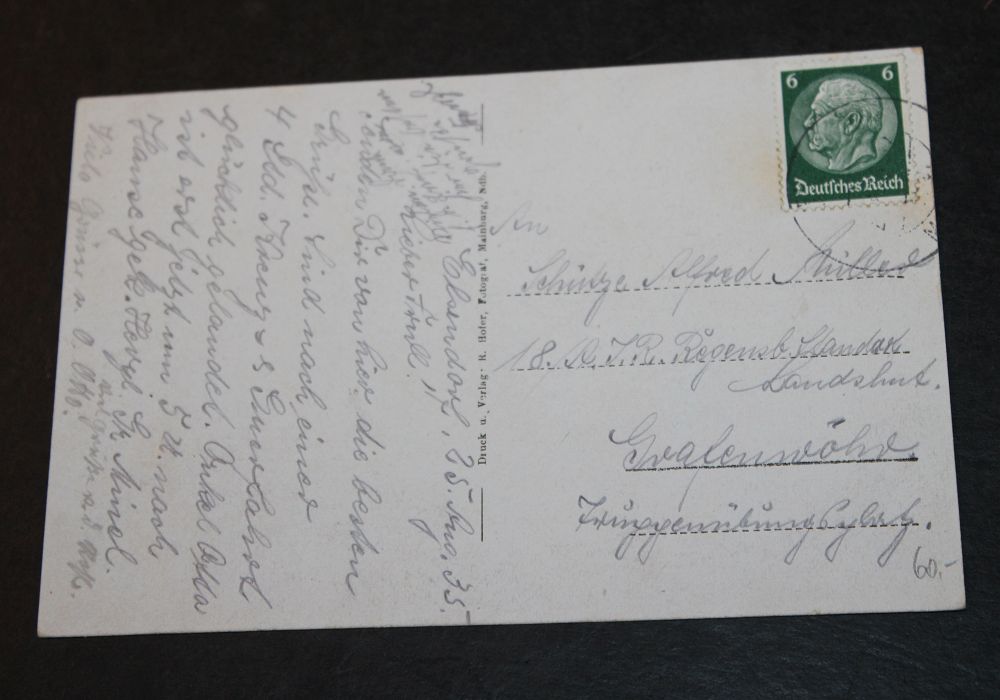 Elsendorf, 25. Aug. 35.
Lieber Fredl!
Senden Dir von hier die besten
Grüße. Sind nach einer
4 Std. Kreuz- & Querfahrt
glücklich gelandet. Onkel Otto
ist erst jetzt um 5 U. nach
Hause gek. Herzl. Gr. Minel.
Viele Grüße v. O. Otto.
Druck u. Verlag: R. Hofer, Fotograf, Mainburg, Ndb.
6 6
Deutsches Reich
An
Schütze Alfred Müller
18. A.I.R. Regensb. Standort
Landshut.
Grafenwöhr.
Truppenübungsplatz.
60.-